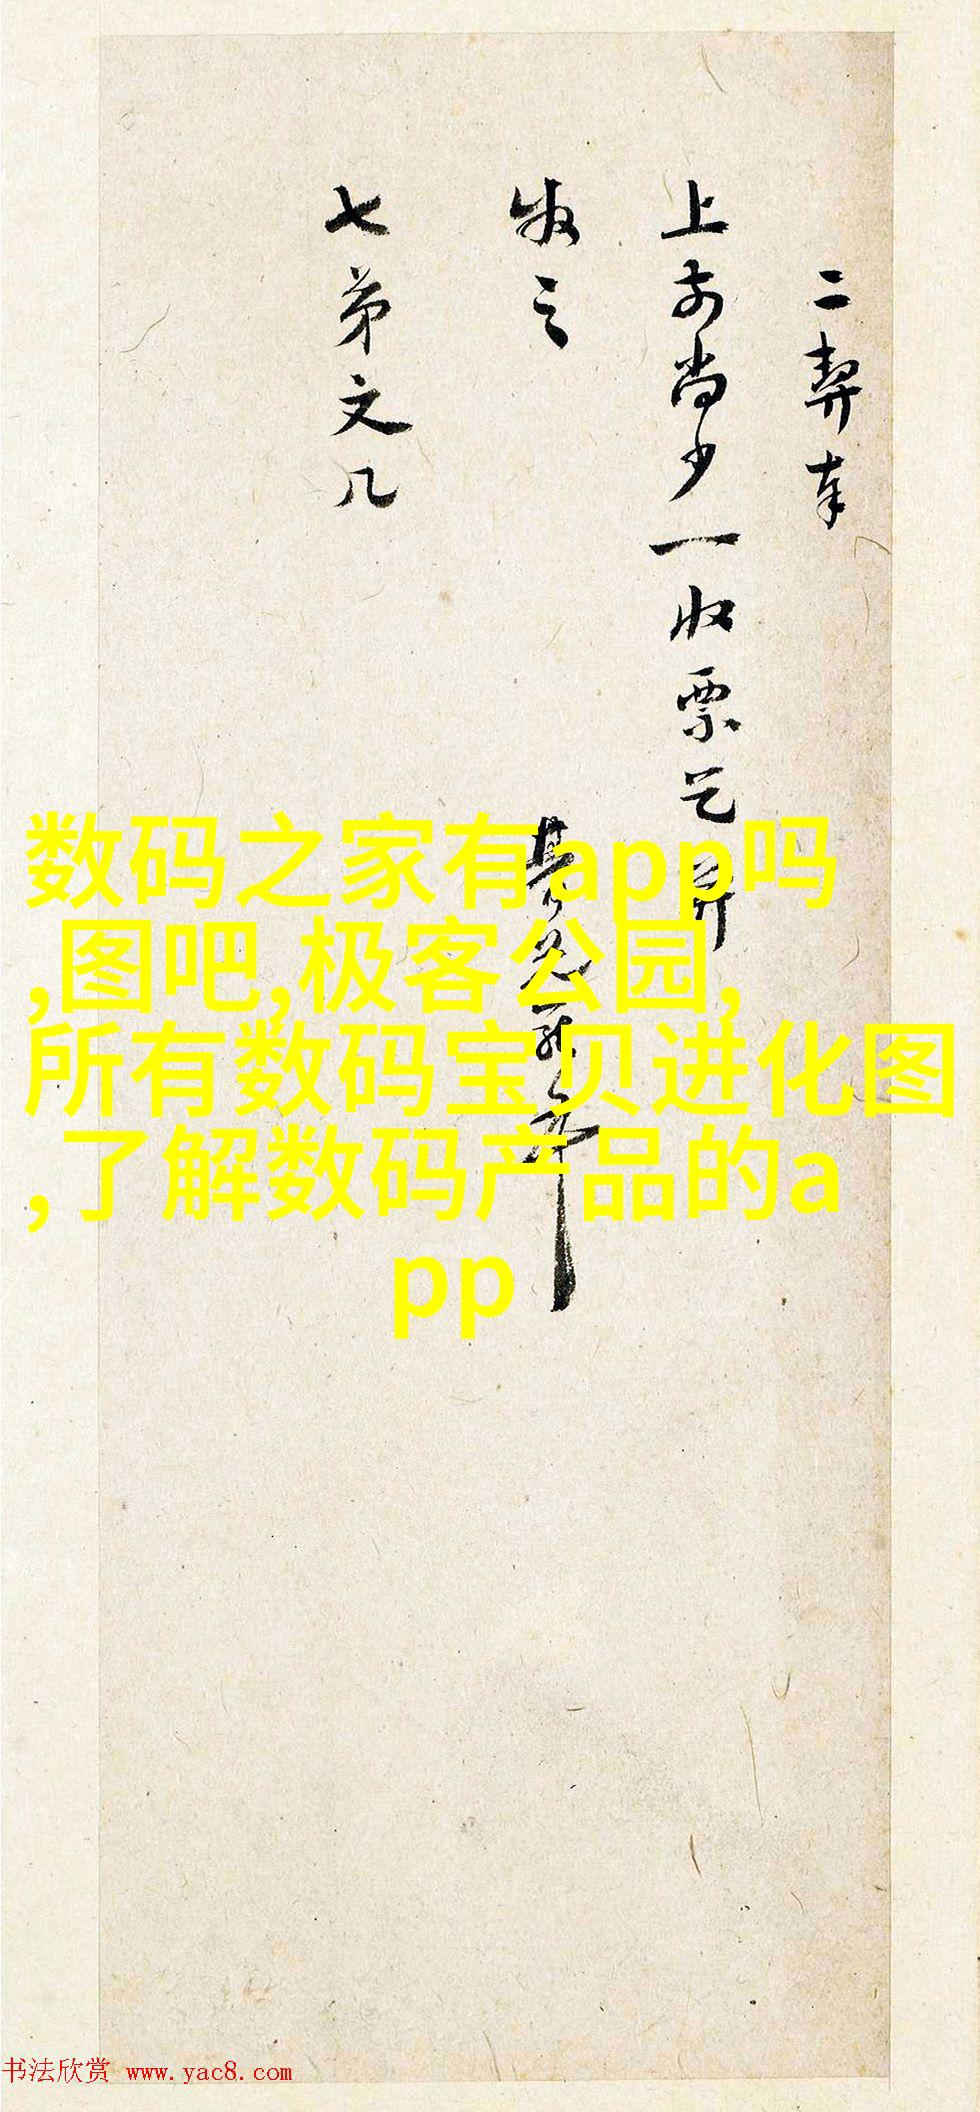 二契奉
上前尚少一收票乞并
收之
七弟文几
数码之家有app吗
,图吧,极客公园,
所有数码宝贝进化图
,了解数码产品的a
pp
书法欣赏 www.yac8.com